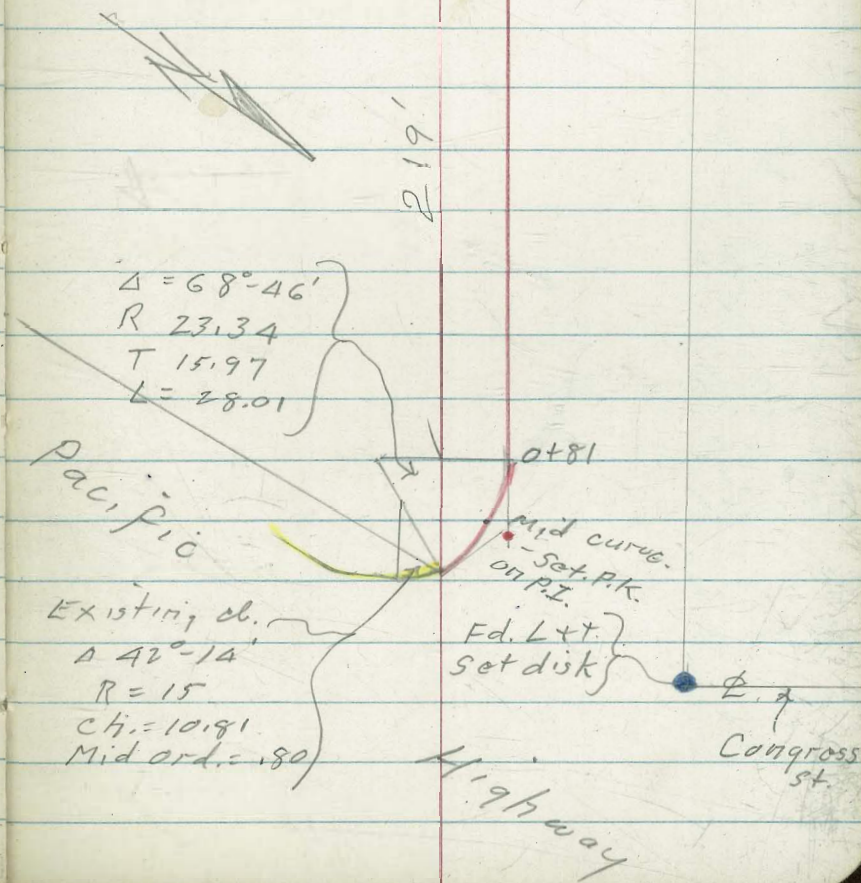 N
219'
Δ = 68°-46'
R 23.34
T 15.97
L = 28.01
0+81
Pacific
Mid curve.
- Set. P.K.
on P.I.
Existing cb.
Δ 42°-14'
R = 15
Ch. = 10.81
Mid ord. = .80
Fd. L+T
Set disk
℄
Congress
st.
Highway